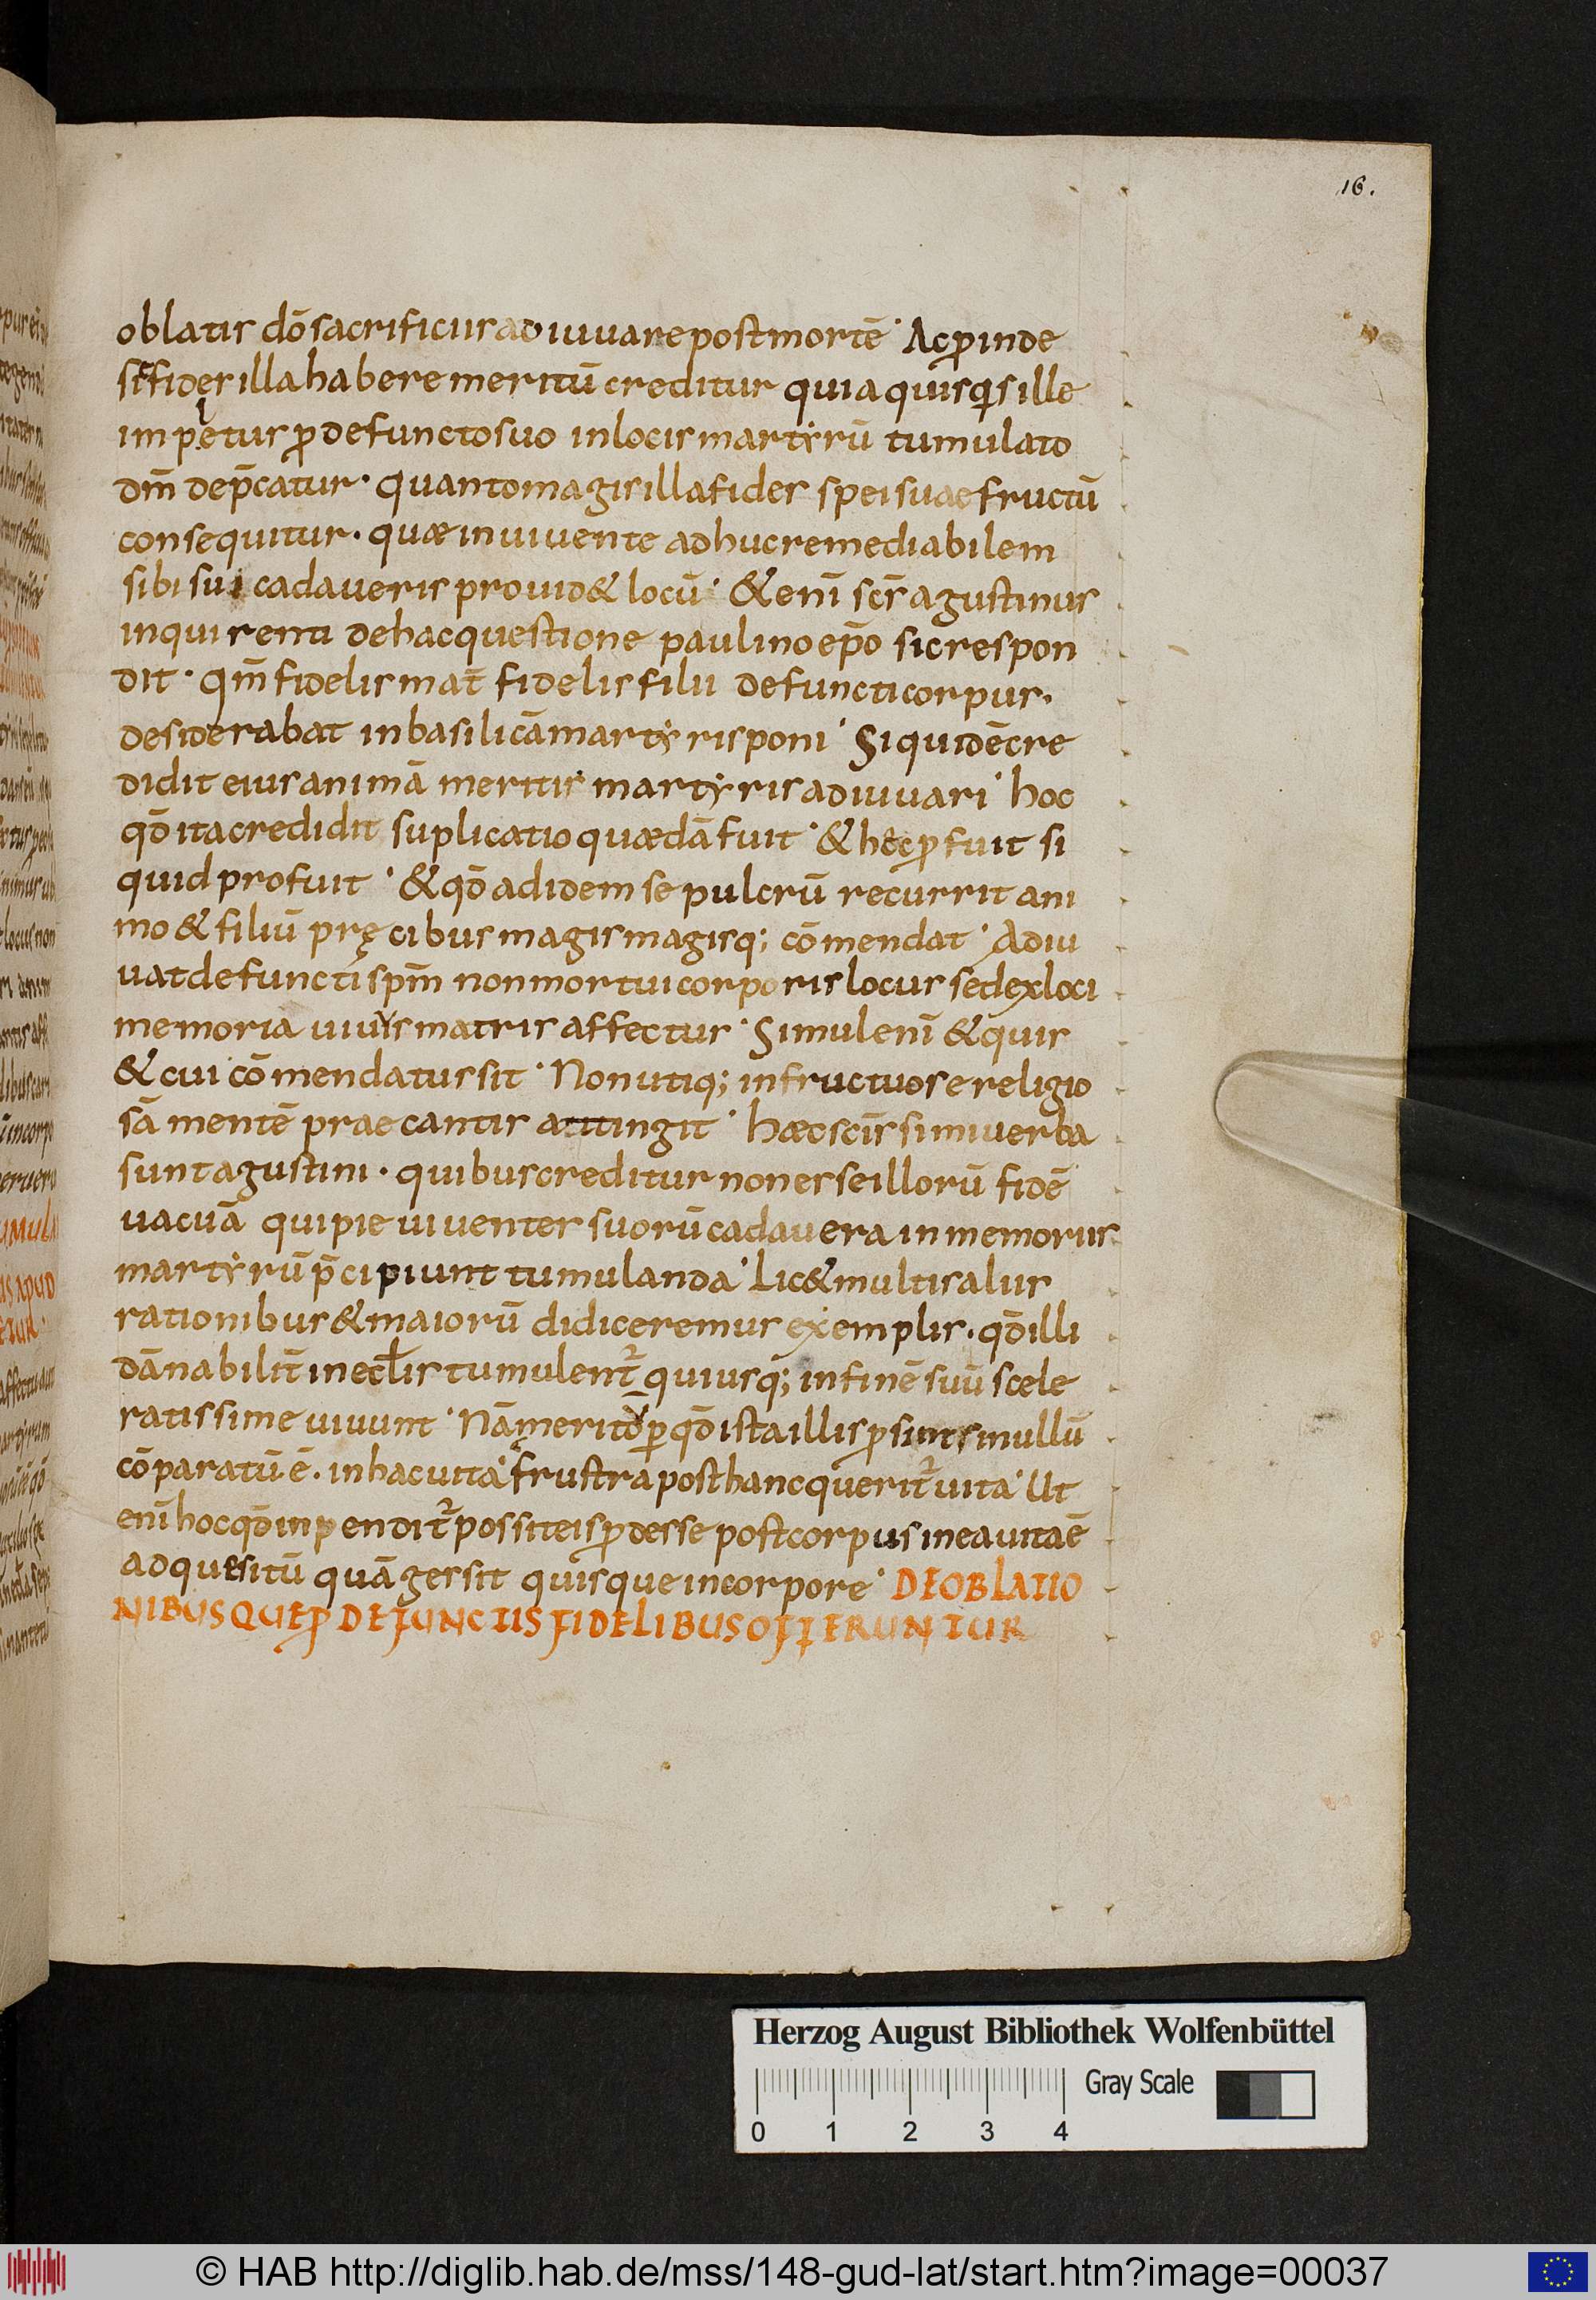 16.
oblatis dō sacrificiis adiuuare post mortē· Ac ꝓinde
si fides illa habere meritū creditur quia quisqꝫs ille
impetus ꝓ defuncto suo in locis martẏrū tumulato
dm̄ dep̄catur· quanto magis illa fides spei suae fructū
consequitur· quæ in uiuente adhuc remediabilem
sibi sui cadaueris prouid& locū· &enī scs̄ agustinus
inquirenti de hac questione paulino ep̄o sic respon
dit· qm̄ fidelis mat̄ fidelis filii defuncti corpus·
desiderabat in basilicā martẏris poni· Siquidē cre
didit eius animā meritis martẏris adiuuari· hoc
qđ ita credidit suplicatio quædā fuit· & hęc ꝓfuit si
quid profuit· & qđ ad idem sepulcrū recurrit ani
mo & filiū pręcibus magis magisq; cōmendat· Adiu
uat defuncti spm̄ non mortui corporis locus sed ex loci
memoria uiuus matris affectus· Simul enī & quis
& cui cōmendatus sit· Non utiq; infructuose religio
sā mentē praecantis attingit· hæc scīssimi uerba
sunt agustini· quibus creditur non esse illorū fidē
uacuā qui pie uiuentes suorū cadauera in memoriis
martẏrū p̄cipiunt tumulanda· lic& multis aliis
rationibus & maiorū didiceremus exemplis· qđ illi
dānabilit̄ in ecl̄is tumulent̄ qui usq; in finē suū scele
ratissime uiuunt· Nā meritū ꝑ qđ ista illis ꝓsint si nullū
cōparatū ē· in hac uita frustra post hanc querit̄ uita· Ut
enī hoc qđ inpendit̄ possit eis ꝓdesse post corpus in ea uita ē
adquesitū quā gessit quisque in corpore· DE OBLATIO
NIBUS QUE Ꝓ DEFUNCTIS FIDELIBUS OFFERUNTUR
Herzog August Bibliothek Wolfenbüttel
Gray Scale
0 1 2 3 4
© HAB http://diglib.hab.de/mss/148-gud-lat/start.htm?image=00037